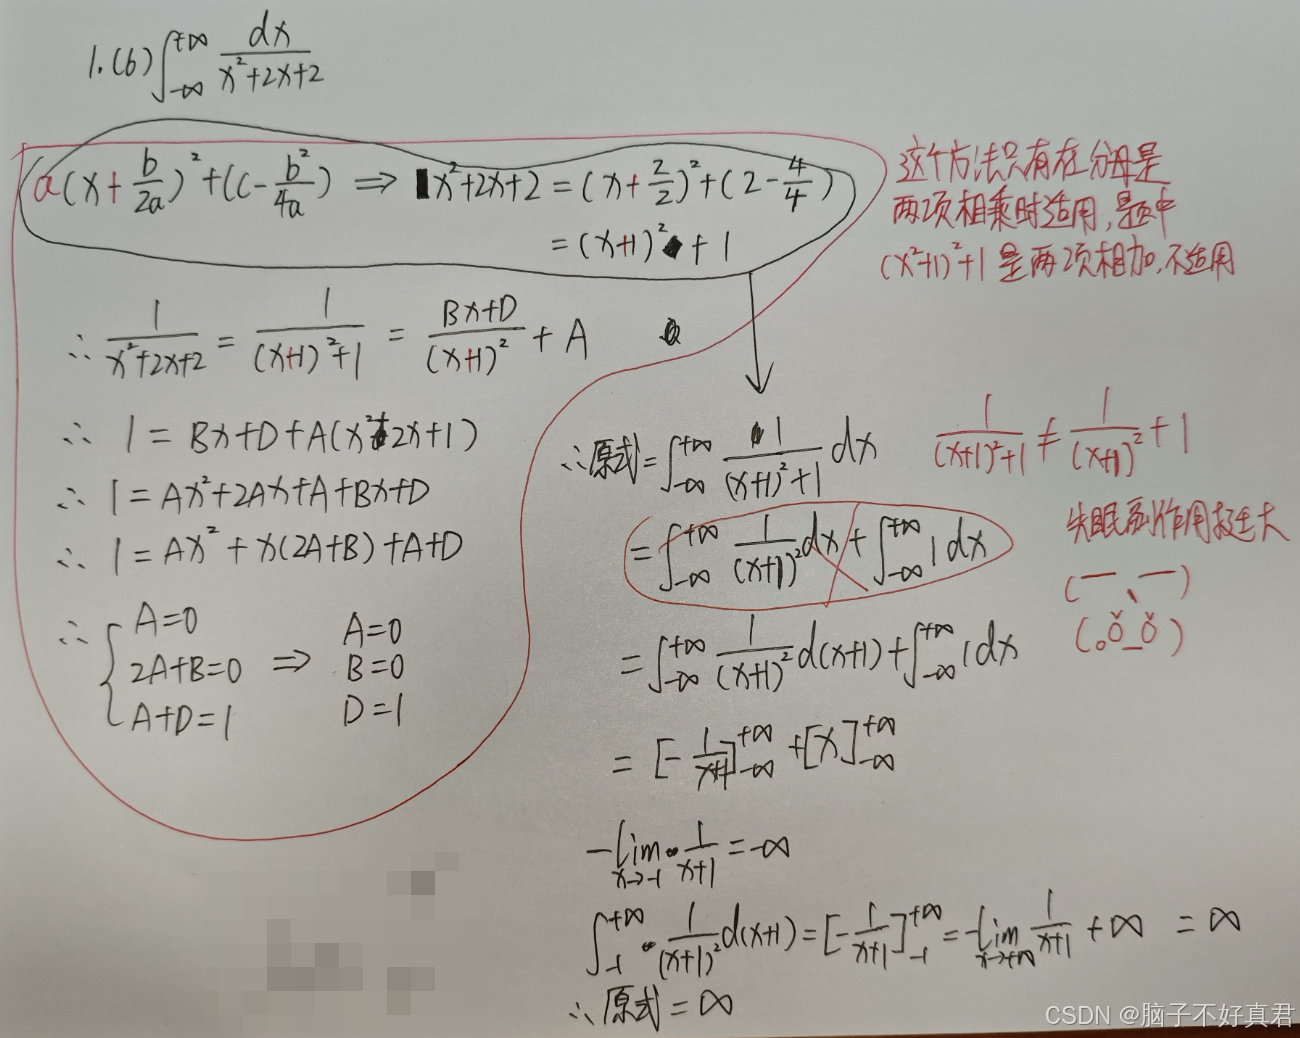 1.(6) ∫_{-∞}^{+∞} dx/(x²+2x+2)
a(x+b/2a)²+(c-b²/4a) ⇒ x²+2x+2=(x+2/2)²+(2-4/4)
=(x+1)²+1
这个方法只有在分母是
两项相乘时适用,题中
(x²+1)²+1是两项相加,不适用
∴ 1/(x²+2x+2) = 1/((x+1)²+1) = (Bx+D)/(x+1)² + A
∴ 1=Bx+D+A(x²+2x+1)
∴ 1=Ax²+2Ax+A+Bx+D
∴ 1=Ax²+x(2A+B)+A+D
∴ { A=0
2A+B=0
A+D=1
⇒
A=0
B=0
D=1
∴原式=∫_{-∞}^{+∞} 1/((x+1)²+1) dx
=∫_{-∞}^{+∞} 1/(x+1)² dx+∫_{-∞}^{+∞} 1dx
=∫_{-∞}^{+∞} 1/(x+1)² d(x+1)+∫_{-∞}^{+∞} 1dx
=[-1/(x+1)]_{-∞}^{+∞}+[x]_{-∞}^{+∞}
-lim_{x→-1} 1/(x+1)=-∞
∫_{-1}^{+∞} 1/(x+1)² d(x+1)=[-1/(x+1)]_{-1}^{+∞}=-lim_{x→+∞} 1/(x+1) +∞ =∞
∴原式=∞
1/((x+1)²+1) ≠ 1/(x+1)² +1
失眠副作用好大
(一、一)
(。ǒ_ǒ)
CSDN @脑子不好真君